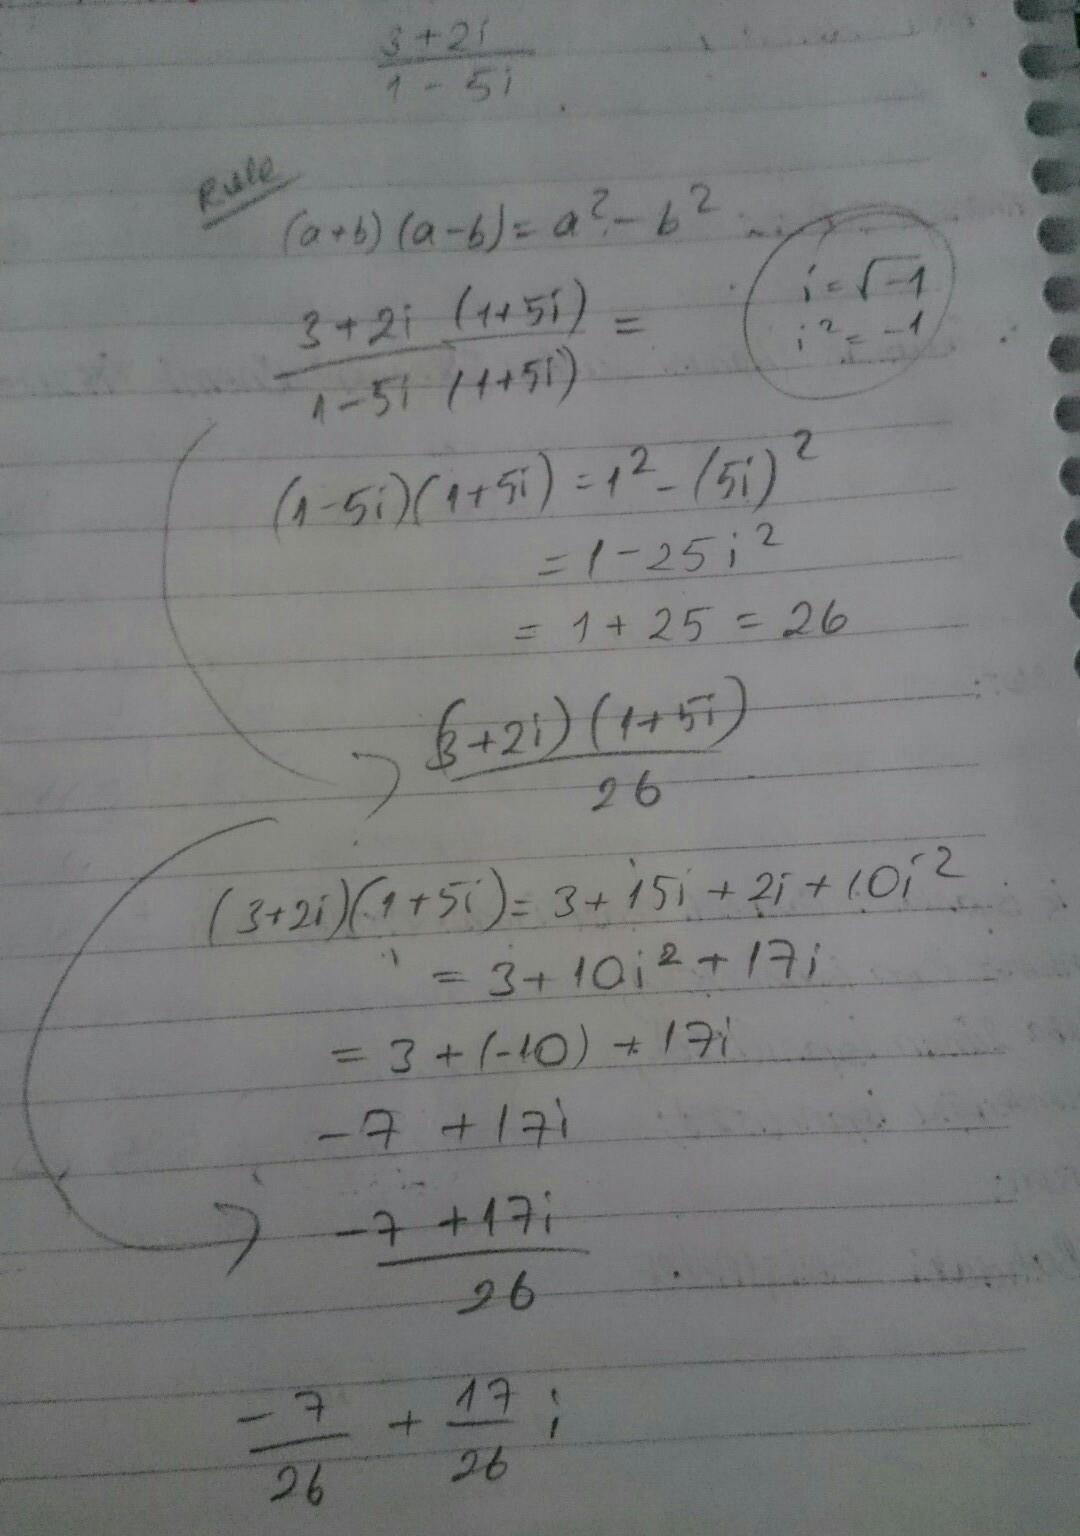 3+2i
1-5i
Rule
(a+b)(a-b)=a²-b²
i=√-1
i²=-1
3+2i (1+5i) =
1-5i (1+5i)
(1-5i)(1+5i)=1²-(5i)²
=1-25i²
=1+25=26
(3+2i)(1+5i)
26
(3+2i)(1+5i)=3+15i+2i+10i²
=3+10i²+17i
=3+(-10)+17i
-7+17i
-7+17i
26
-7/26 + 17/26 i